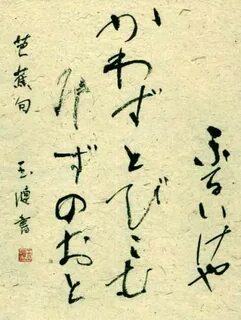 ふるいけや
かわずとびこむ
みずのおと
芭蕉句
玉漣書